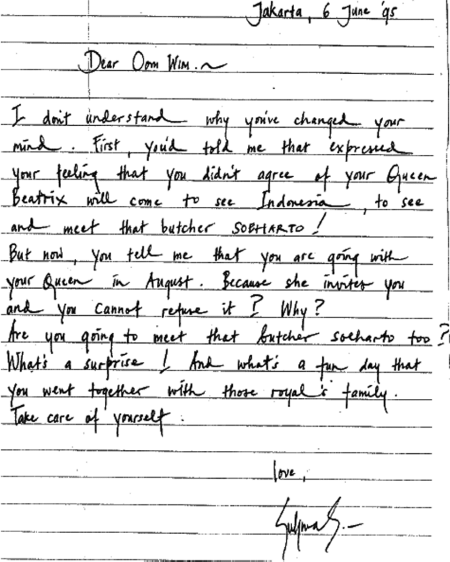 Jakarta, 6 June '95
Dear Oom Wim. ~
I don't understand why you've changed your
mind. First, you'd told me that expressed
your feeling that you didn't agree of your Queen
Beatrix will come to see Indonesia, to see
and meet that butcher SOEHARTO!
But now, you tell me that you are going with
your Queen in August. Because she invites you
and you cannot refuse it? Why?
Are you going to meet that butcher soeharto too?
What's a surprise! And what's a fun day that
you went together with those royal's family.
Take care of yourself.
love,